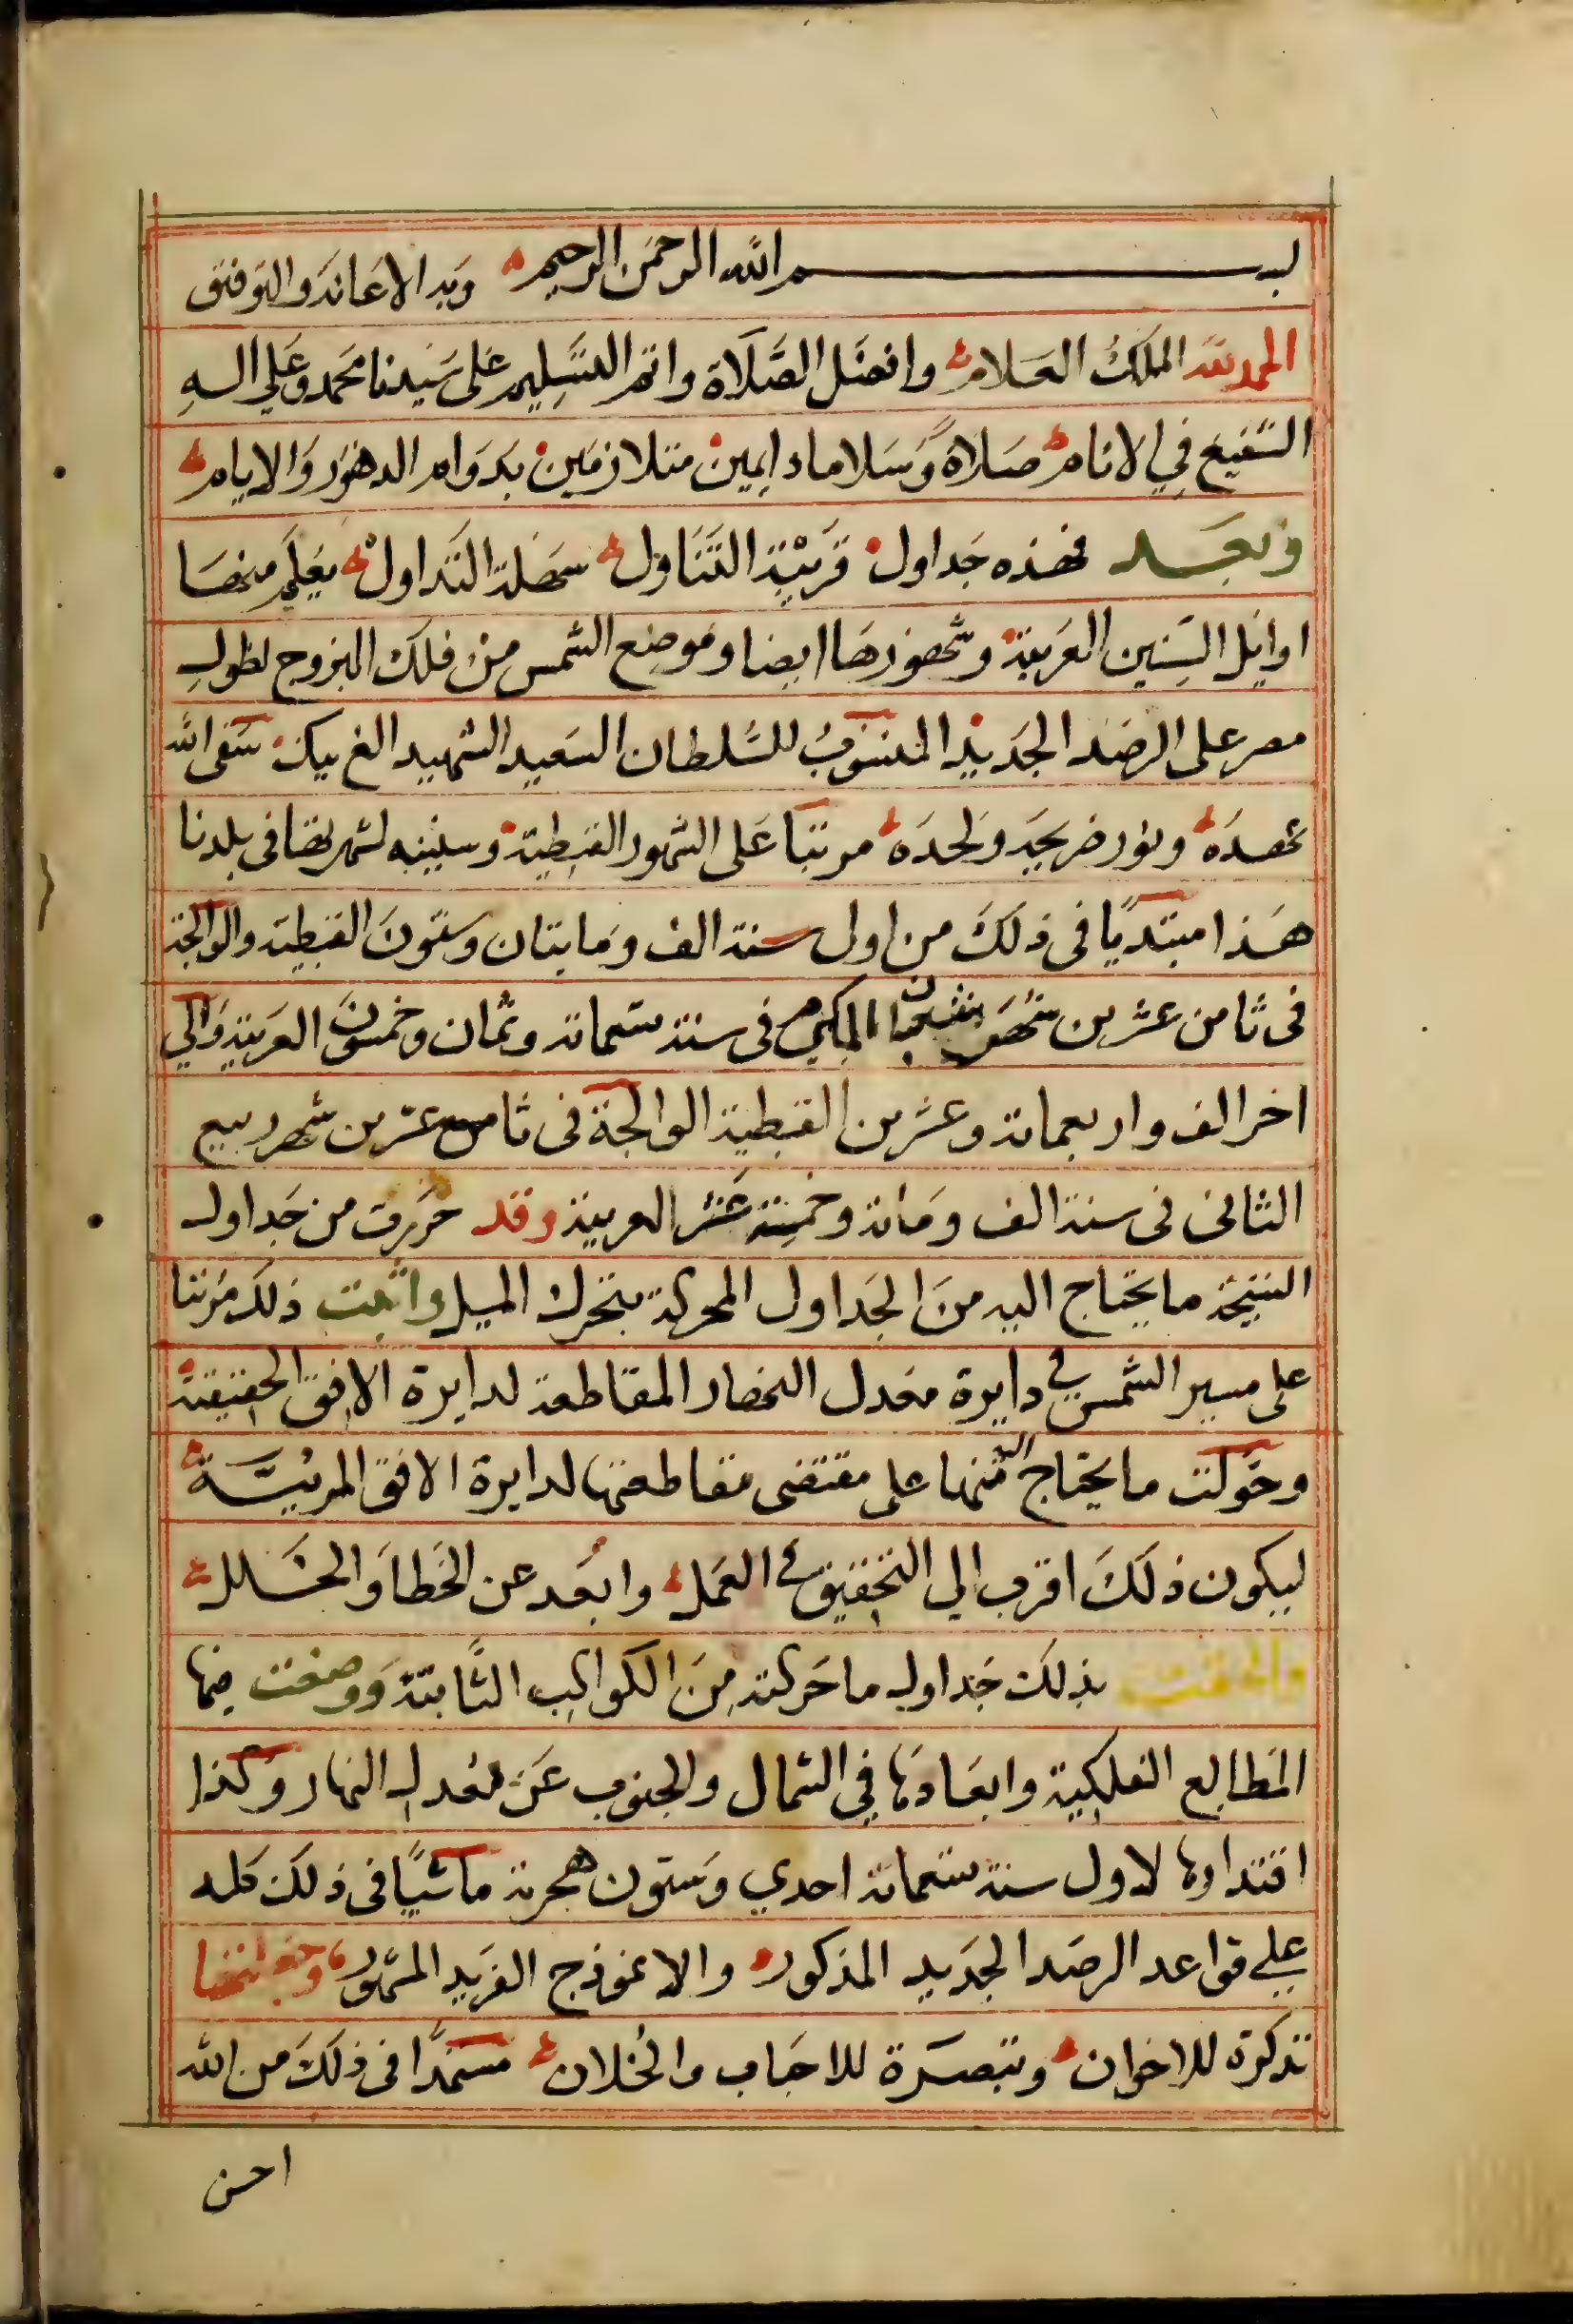 بسم الله الرحمن الرحيم وبه الاعانة والتوفيق
الحمد لله الملك العلام وافضل الصلاة واتم التسليم على سيدنا محمد وعلي اله
الشفيع في الانام صلاة وسلاما دايمين متلازمين بدوام الدهور والايام
وبعد فهذه جداول قريبة التناول سهلة التداول يعلم منها
اوايل السنين العربية وشهورها ايضا وموضع الشمس من فلك البروج لطول
مصر على الرصد الجديد المنسوب للسلطان السعيد الشهيد الغ بيك سقى الله
عهده ونور ضريحه ولحده مرتبا على الشهور القبطية وسنينه لشهرتها في بلدنا
هذا مبتديا في ذلك من اول سنة الف ومايتان وستون القبطية والوالجة
في ثامن عشرين شهر شعبان المكرم في سنة تسعماية وثمان وخمسون العربية والي
اخر الف واربعماية وعشرين القبطية الوالجة في ثامن عشرين شهر ربيع
الثاني في سنة الف ومائة وخمسة عشر العربية وقد حررت من جداول
النتيجة ما يحتاج اليه من الجداول المحركة بتحرك الميل واثبت ذلك مرتبا
على مسير الشمس في دايرة معدل النهار المقاطعة لدايرة الافق الحقيقية
وحولت ما يحتاج اليه منها على مقتضى مقاطعتها لدايرة الافق المرئية
ليكون ذلك اقرب الي التحقيق في العمل وابعد عن الخطا والخلل
والحقت بذلك جداول ما حركته من الكواكب الثابتة ووضعت فيها
المطالع الفلكية وابعادها في الشمال والجنوب عن معدل النهار وكذا
اقتدارها لاول سنة تسعماية احدي وستون هجرية ماشيا في ذلك كله
علي قواعد الرصد الجديد المذكور والانموذج الفريد المشهور وجعلتها
تذكرة للاخوان وتبصرة للاحباب والخلان مستمدا في ذلك من الله
احسن